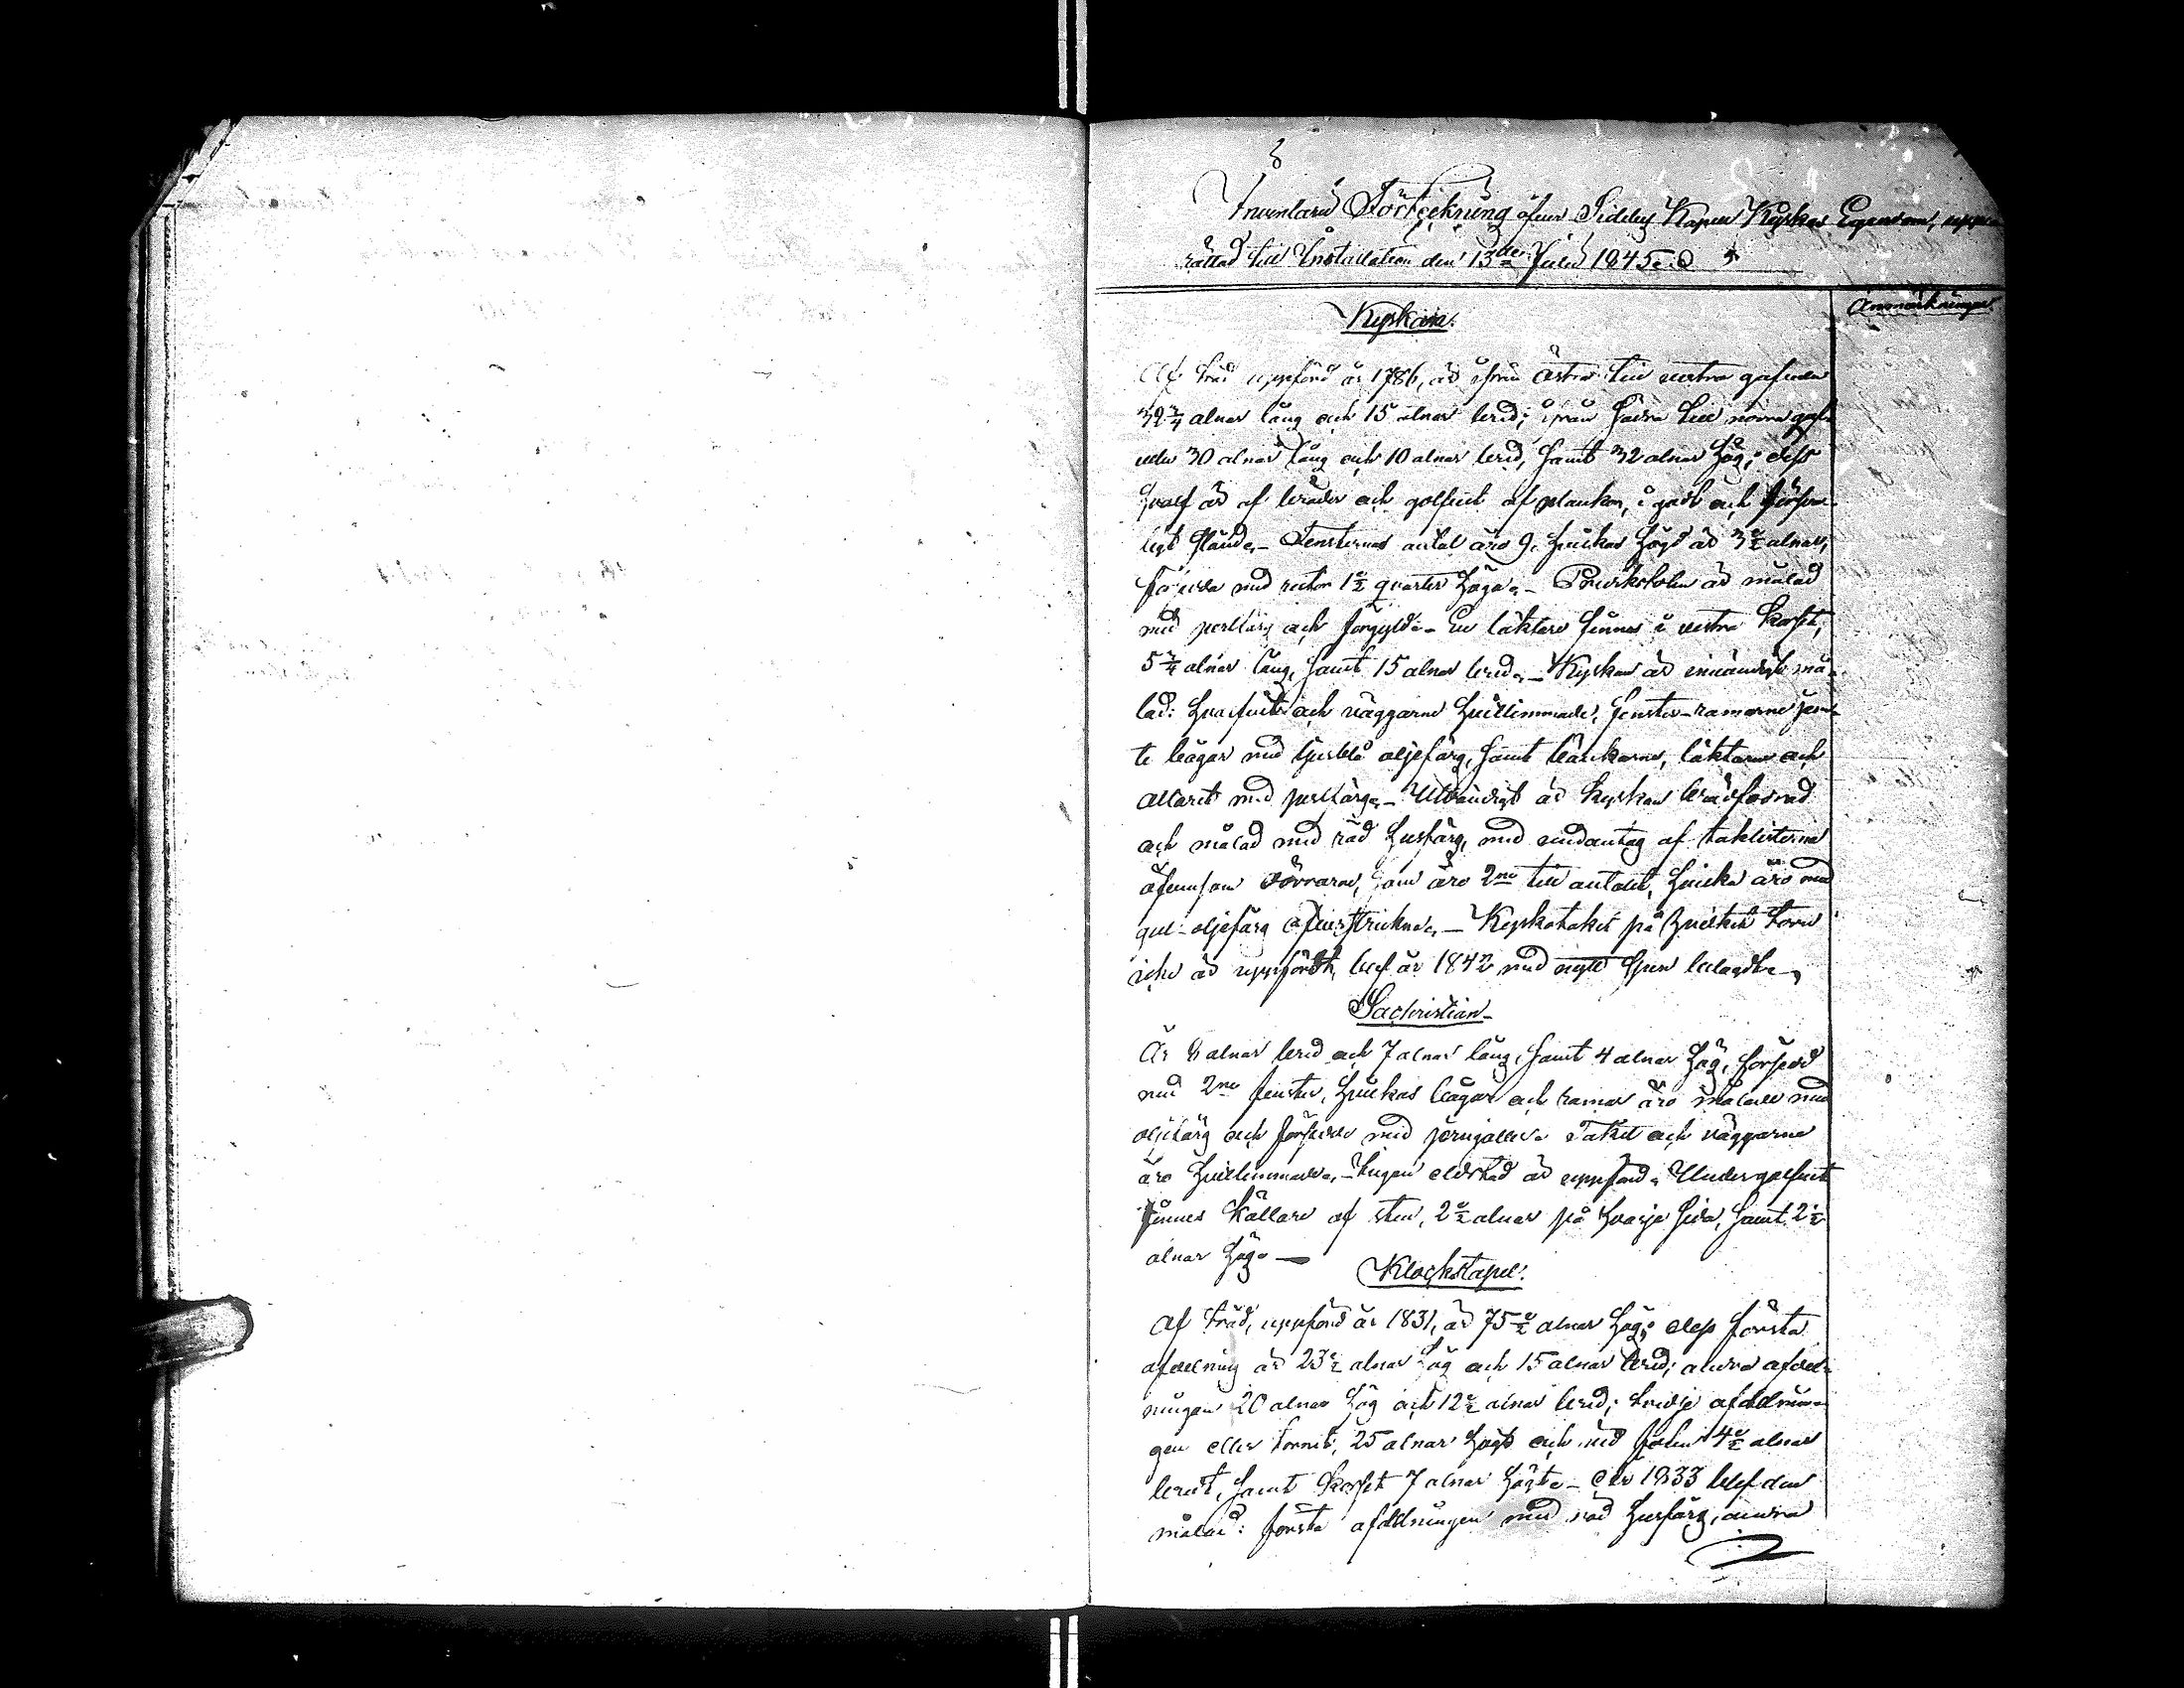 Inventarii Förteckning öfver Sideby Kapell Kyrkas Egendom, upp
rättad till Installation den 13de Julii 1845.
Anmärkningar.
Kyrkan.
Af träd uppförd år 1786, är ifrån östra till vestra gafveln
39 3/4 alnar lång och 15 alnar bred; ifrån södra till norra gaf
veln 30 alnar lång och 10 alnar bred, samt 32 alnar hög; dess
hvalf är af bräder och golfvet af plankor, i godt och försvar-
ligt stånd. - Fensternas antal äro 9, hvilkas högd är 3 1/2 alnar,
försedda med rutor 1 1/2 quarter höga. - Predikstolen är målad
med perlfärg och förgyld. - En läktare finnes i vestra korset,
5 3/4 alnar lång, samt 15 alnar bred. - Kyrkan är invändigt må-
lad: hvalfvet och väggarne hvitlimmade, fenster-ramarne jem-
te bågar med ljusblå oljefärg, samt bänkarne, läktaren och
altaret med perlfärg. - Utvändigt är kyrkan brädfodrad
och målad med röd husfärg, med undantag af taklisterna
äfvensom dörrarne, som äro 2ne till antalet, hvilka äro med
gul-oljefärg öfverstrukna. - Kyrkotaket på hvilket torn
icke är uppfördt, blef år 1842 med nytt spån belagdt.
Sachristian
Är 8 alnar bred och 7 alnar lång, samt 4 alnar hög, försedd
med 2ne fenster, hvilkas bågar och ramar äro målade med
oljefärg och försedde med jerngaller. Taket och väggarne
äro hvitlimmade, - Ingen eldstad är uppförd. Under golfvet
finnes källare af sten, 2 1/2 alnar på hvarje sida, samt 2 1/2
alnar hög. -
Klockstapel.
Af träd, uppförd år 1831, är 75 1/2 alnar hög; dess första
afdelning är 23 1/2 alnar hög och 15 alnar bred; andra afdel-
ningen 20 alnar hög och 12 1/2 alnar bred; tredje afdelnin-
gen eller tornet, 25 alnar högt och vid foten 4 1/2 alnar
bredt, samt korset 7 alnar högt. - År 1833 blef den
målad: första afdelningen med röd husfärg, andra